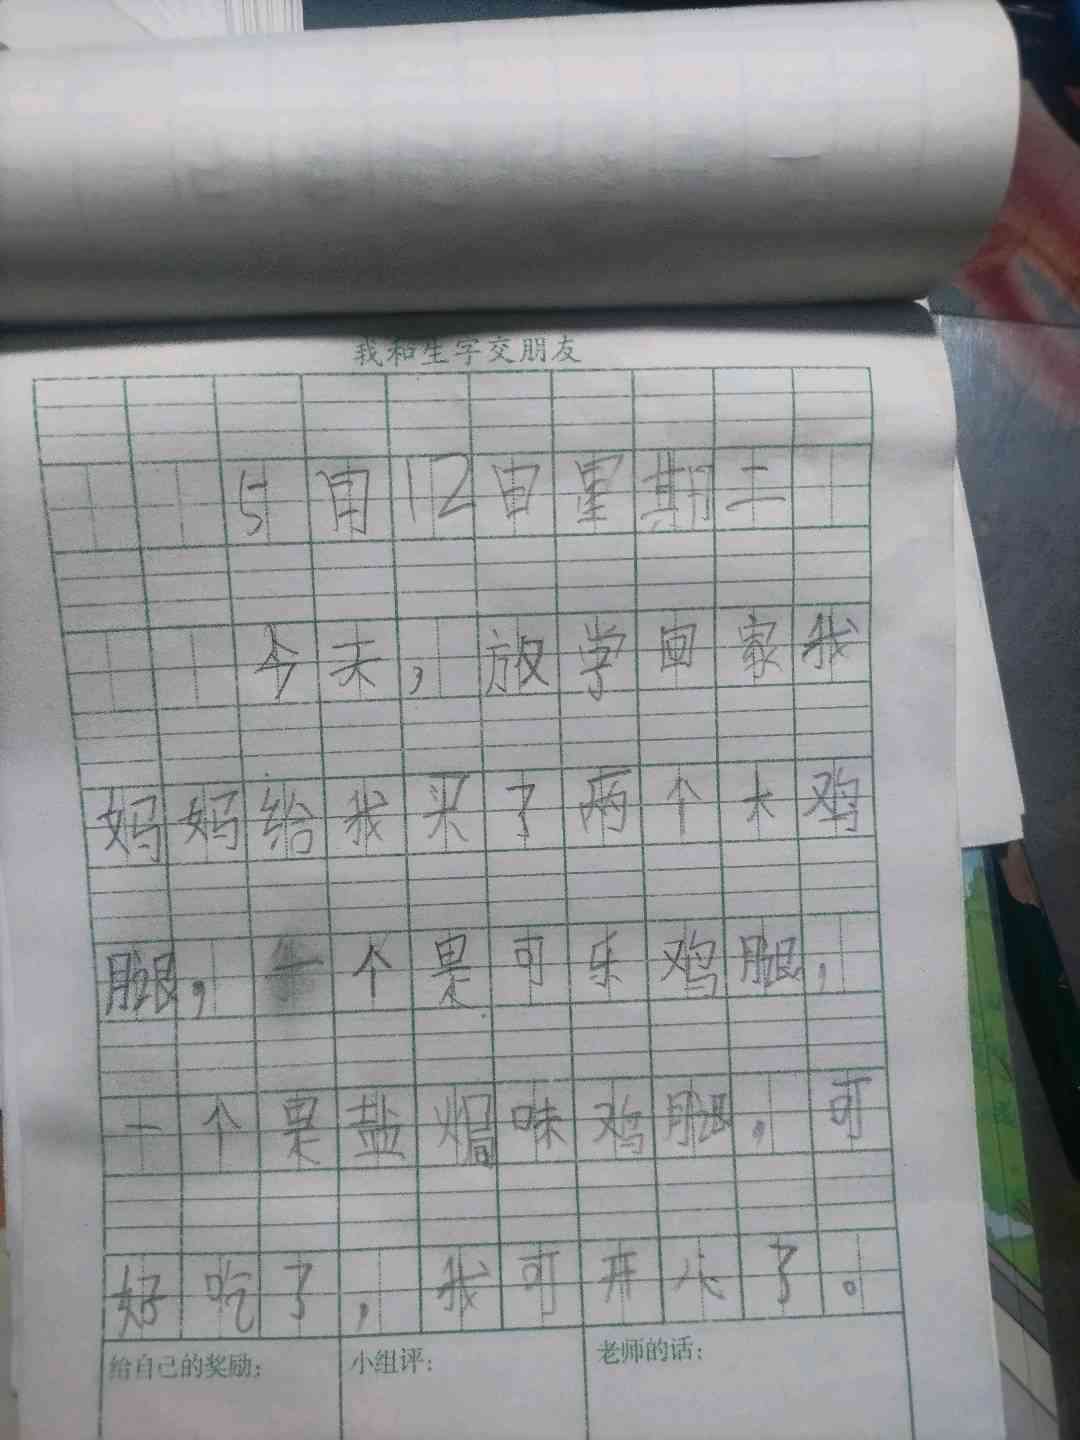 我和生字交朋友
5月12日星期二
今天，放学回家我
妈妈给我买了两个大鸡
腿，一个是可乐鸡腿，
一个是盐焗味鸡腿，可
好吃了，我可开心了。
给自己的奖励：
小组评：
老师的话：